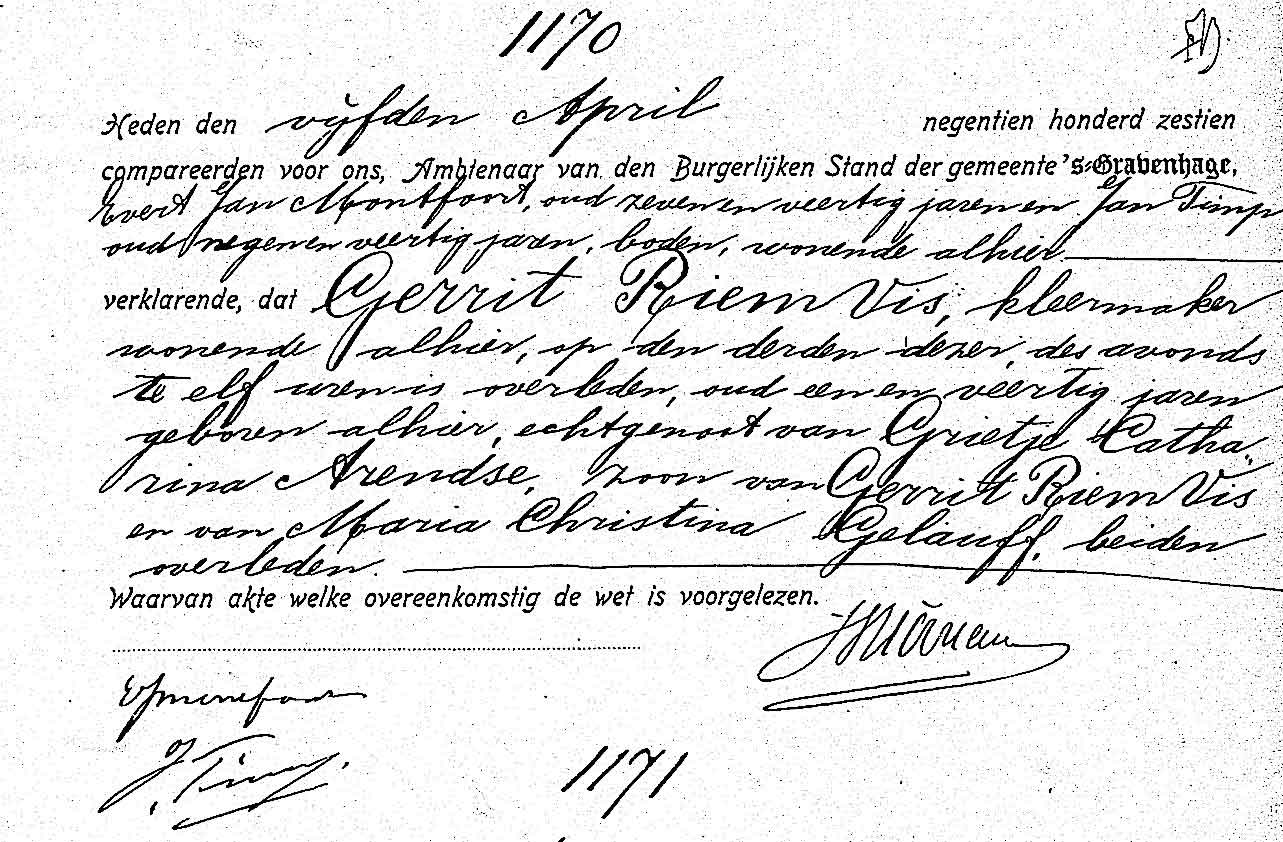 1170
Heden den vijfden April negentien honderd zestien
compareerden voor ons, Ambtenaar van den Burgerlijken Stand der gemeente 's-Gravenhage,
Evert Jan Montfoort, oud zeven en veertig jaren en Jan Timp
oud negen en veertig jaren, boden, wonende alhier
verklarende, dat Gerrit Riem Vis, kleermaker
wonende alhier, op den derden dezer, des avonds
te elf uren is overleden, oud een en veertig jaren
geboren alhier, echtgenoot van Grietje Catha„
rina Arendse, zoon van Gerrit Riem Vis
en van Maria Christina Gelauff, beiden
overleden.
Waarvan akte welke overeenkomstig de wet is voorgelezen.
EJMontfoort
J. Timp.
1171